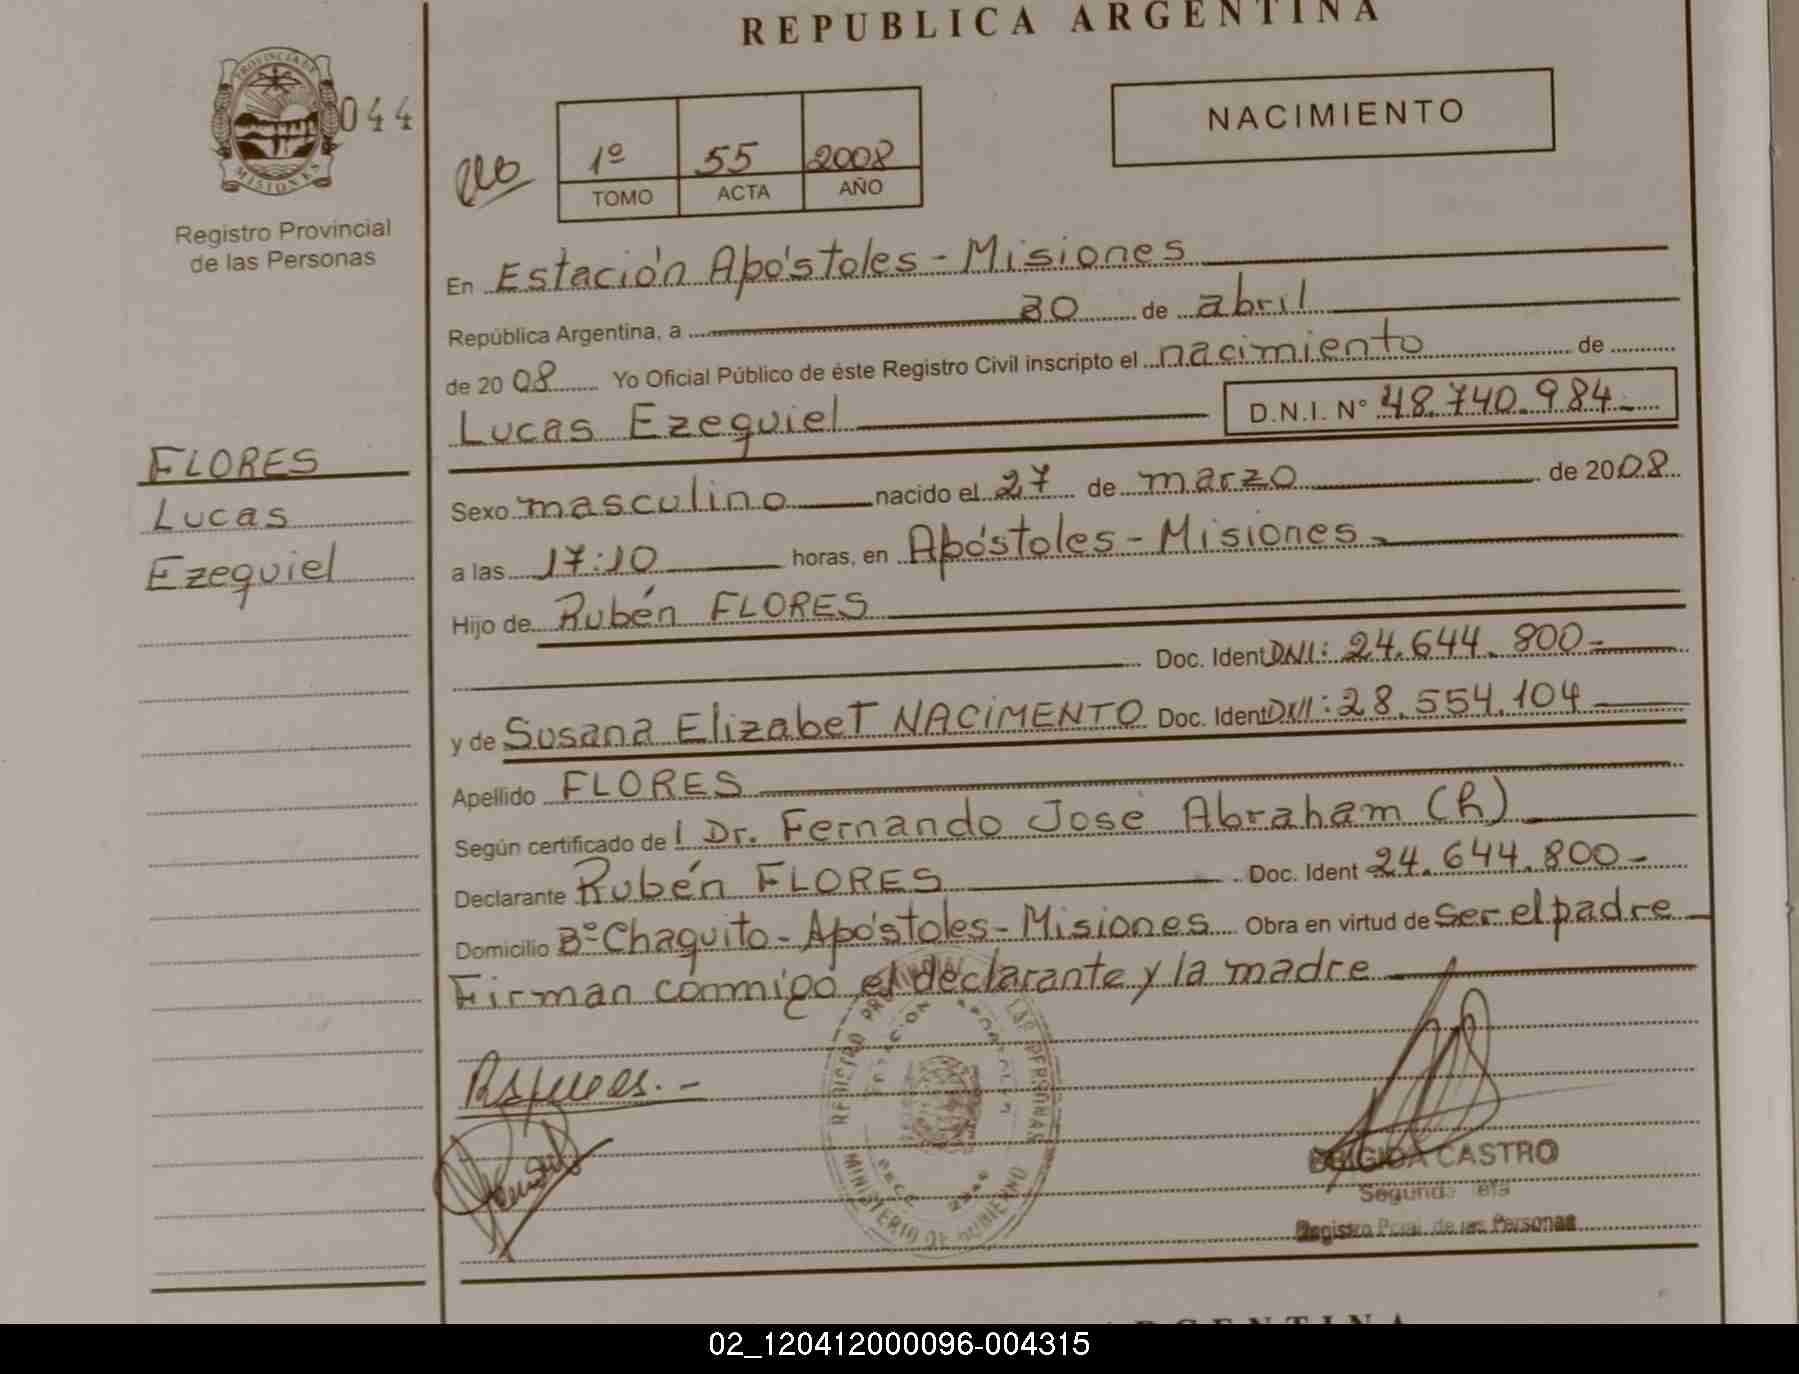 REPUBLICA ARGENTINA
PROVINCIA DE
MISIONES
044
NACIMIENTO
1º 55 2008
TOMO ACTA AÑO
Registro Provincial
de las Personas
En Estación Apóstoles - Misiones
República Argentina, a 30 de abril
de 2008 Yo Oficial Público de éste Registro Civil inscripto el nacimiento de
Lucas Ezequiel D.N.I. Nº 48.740.984.-
FLORES
Lucas
Ezequiel
Sexo masculino nacido el 27 de marzo de 2008
a las 17:10 horas, en Apóstoles - Misiones.
Hijo de Rubén FLORES
Doc. Ident DNI: 24.644.800-
y de Susana Elizabet NACIMENTO Doc. Ident DNI: 28.554.104
Apellido FLORES
Según certificado de l Dr. Fernando José Abraham (h)
Declarante Rubén FLORES Doc. Ident 24.644.800-
Domicilio Bº Chaquito - Apóstoles - Misiones Obra en virtud de ser el padre
Firman conmigo el declarante y la madre
REGISTRO LAS PERSONAS
MINISTERIO DE GOBIERNO
BRIGIDA CASTRO
Segunda Jefa
Registro Pcial. de las Personas
ARGENTINA
02_120412000096-004315